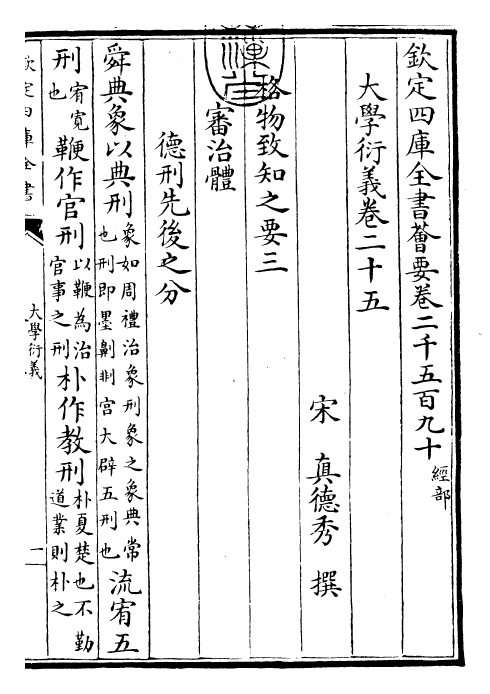 欽定四庫全書薈要卷二千五百九十 經部
大學衍義卷二十五
宋 真德秀 撰
格物致知之要三
審治體
德刑先後之分
舜典象以典刑 象如周禮治象刑象之象典常也刑即墨劓剕宫大辟五刑也 流宥五
刑 宥寛也 鞭作官刑 以鞭為治官事之刑 朴作教刑 朴夏楚也不勤道業則朴之
欽定四庫全書
大學衍義
一